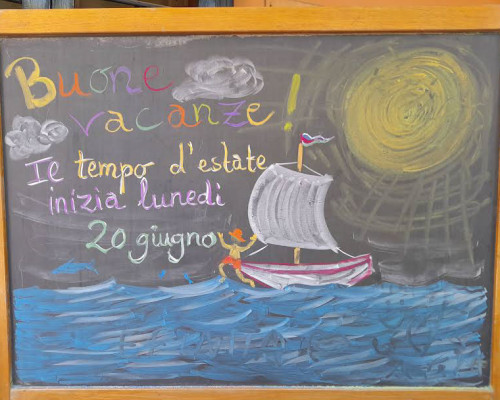 Buone
vacanze!
Il tempo d'estate
inizia lunedì
20 giugno